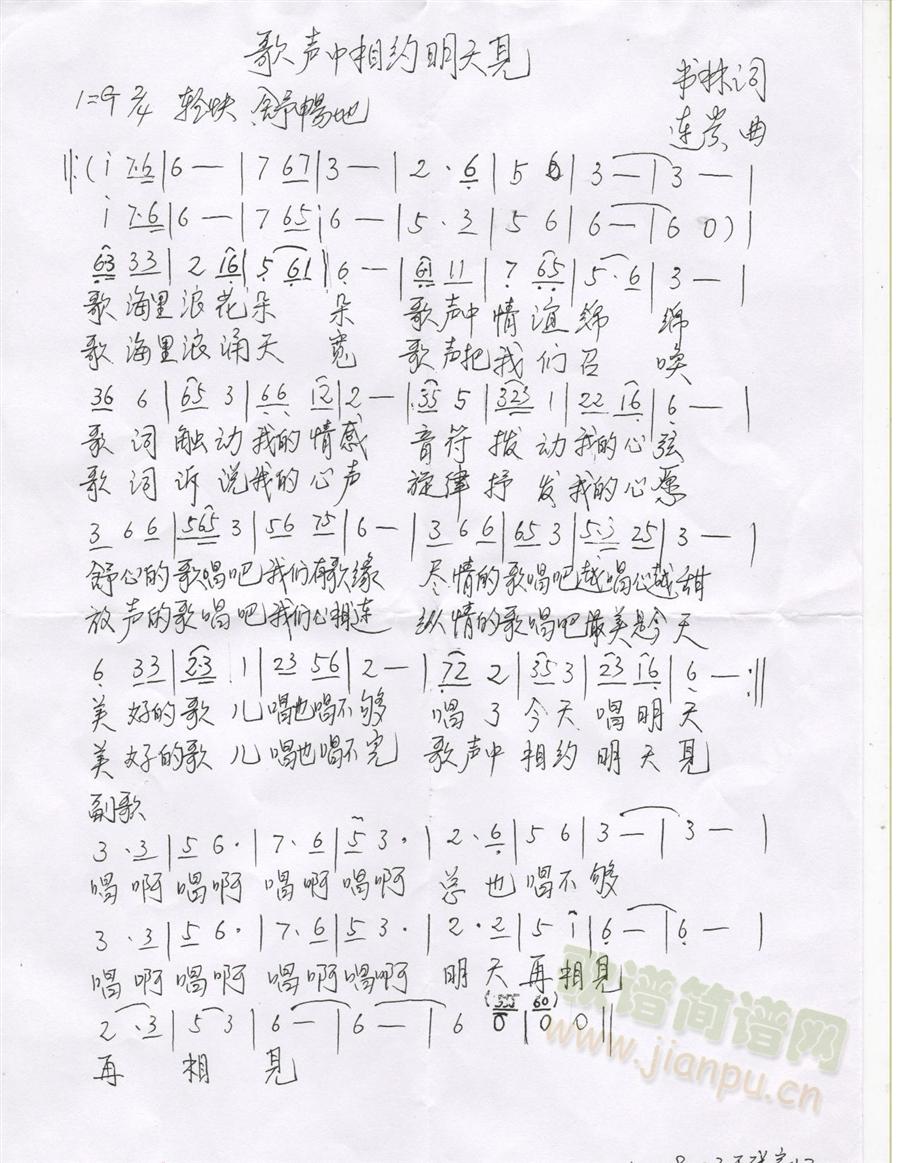 歌声中相约明天见
书林词
1=G 2/4 轻快 舒畅地
连赏曲
‖:(i 7·6|6 —|7 67|3 —|2·6|5 6|3 —|3 —|
i 7·6|6 —|7 65|6 —|5·3|5 6|6 —|6 0)|
63 33|2 16|5 61|6 —|61 11|7 65|5·6|3 —|
歌海里浪花朵 朵 歌声中情谊绵 绵
歌海里浪涌天 宽 歌声把我们召 唤
36 6|65 3|66 12|2 —|35 5|323 1|22 16|6 —|
歌词触动我的情感 音符拨动我的心弦
歌词诉说我的心声 旋律抒发我的心愿
3 6 6|565 3|56 75|6 —|3 6 6|65 3|5·3 25|3 —|
舒心的歌唱吧我们有歌缘 尽情的歌唱吧越唱心越甜
放声的歌唱吧我们心相连 纵情的歌唱吧最美是今天
6 33|2·3 1|23 56|2 —|72 2|35 3|23 16|6 —:‖
美好的歌儿唱也唱不够 唱了今天唱明天
美好的歌儿唱也唱不完 歌声中相约明天见
副歌
3·3|5 6·|7·6|5 3·|2·6|5 6|3 —|3 —|
唱啊唱啊唱啊唱啊 总也唱不够
3·3|5 6·|7·6|5 3·|2·2|5 i|6 —|6 —|
唱啊唱啊唱啊唱啊 明天再相见
(555 60)
2·3|5 3|6 —|6 —|6 0|0 0‖
再 相 见
歌谱简谱网
www.jianpu.cn